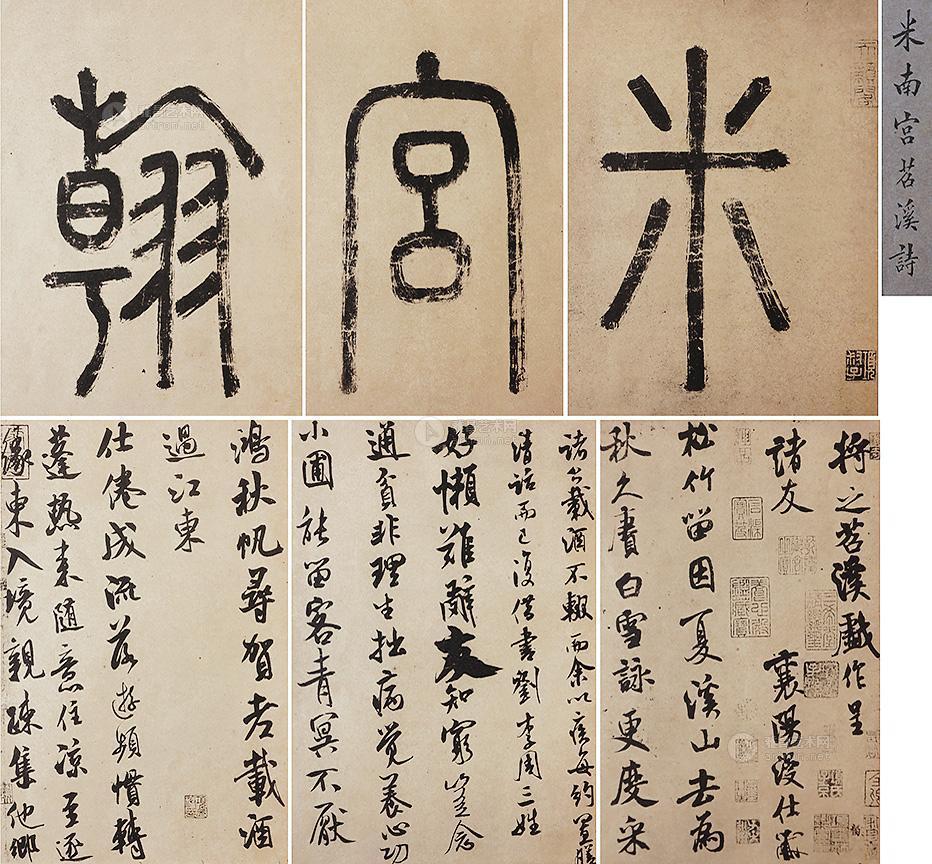 米南宮苕溪詩
米
宮
翰
將之苕溪戲作呈
諸友
襄陽漫仕黻
松竹留因夏溪山去為
秋久賡白雪詠更度采
諸公載酒不輟而余以疾每約置膳
清話而已復借書劉李周三姓
好懶難辭友知窮豈念
通貧非理生拙病覺養心功
小圃能留客青冥不厭
鴻秋帆尋賀老載酒
過江東
仕倦成流落遊頻慣轉
蓬熱來隨意住涼至逐
緣東入境親疎集他鄉